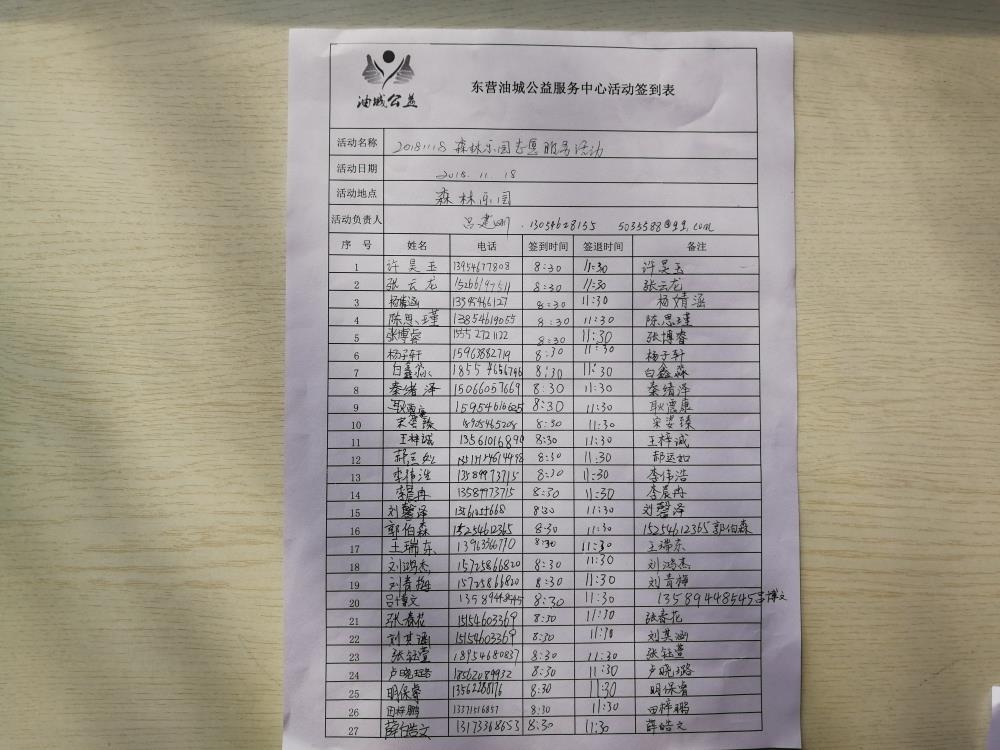 油城公益
东营油城公益服务中心活动签到表
活动名称 20181118 森林乐园志愿服务活动
活动日期 2018.11.18
活动地点 森林乐园
活动负责人 吕建刚 13054628155 5035588@qq.com
序号 姓名 电话 签到时间 签退时间 备注
1 许昊玉 13954677808 8:30 11:30 许昊玉
2 张云龙 15266197511 8:30 11:30 张云龙
3 杨婧涵 8:30 11:30 杨婧涵
4 陈思瑾 13854619055 8:30 11:30 陈思瑾
5 张博睿 15552721122 8:30 11:30 张博睿
6 杨子轩 15963882719 8:30 11:30 杨子轩
7 白鑫淼 18554656746 8:30 11:30 白鑫淼
8 秦绪泽 15066057669 8:30 11:30 秦绪泽
9 耿德康 15954610625 8:30 11:30 耿德康
10 宋姿臻 18905465208 8:30 11:30 宋姿臻
11 王梓诚 13561016899 8:30 11:30 王梓诚
12 8:30 11:30
13 李伟浩 13589973715 8:30 11:30 李伟浩
14 李晨冉 13589973715 8:30 11:30 李晨冉
15 刘馨泽 8:30 11:30 刘馨泽
16 郭伯森 15254612365 8:30 11:30 15254612365 郭伯森
17 王瑞东 8:30 11:30 王瑞东
18 刘鸿杰 15725866820 8:30 11:30 刘鸿杰
19 刘青梅 15725866820 8:30 11:30 刘青梅
20 吕博文 13589448545 8:30 11:30 13589448545 吕博文
21 张春花 15154603369 8:30 11:30 张春花
22 刘其涵 15154603369 8:30 11:30 刘其涵
23 张钰萱 18954680837 8:30 11:30 张钰萱
24 卢晓璐 18562089932 8:30 11:30 卢晓璐
25 明保睿 13562288176 8:30 11:30 明保睿
26 田梓鹏 13371516857 8:30 11:30 田梓鹏
27 薛皓文 13173368653 8:30 11:30 薛皓文